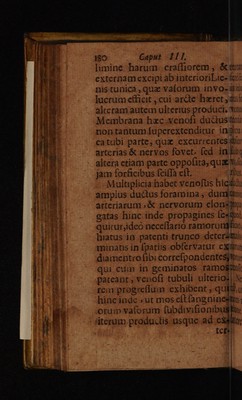 180 Caput III.
limine harum crassiorem, &
externam excipi ab interiori Lie-
nis tunica, quæ vasorum invo-
lucrum efficit, cui arcte hæret,
alteram autem ulterius produci.
Membrana hæc venosi ductus
non tantum superextenditur in
ea tubi parte, quæ excurrentes
arterias & nervos fovet, sed in
altera etiam parte opposita, quæ
jam forficibus scissa est.
Multiplicia habet venosus hic
ampius ductus foramina, dum
arteriarum & nervorum elon-
gatas hinc inde propagines se-
quitur, ideo necessario ramorum
hiatus in patenti trunco deter-
minatis in spatiis observatur ex
diametro sibi correspondentes,
qui cum in geminatos ramos
pateant, venosi tubuli ulterio-
rem progressum exhibent, qui
hinc inde, ut mos est sanguine-
orum vasorum subdivisionibus
iterum productis usque ad ex-
ter-